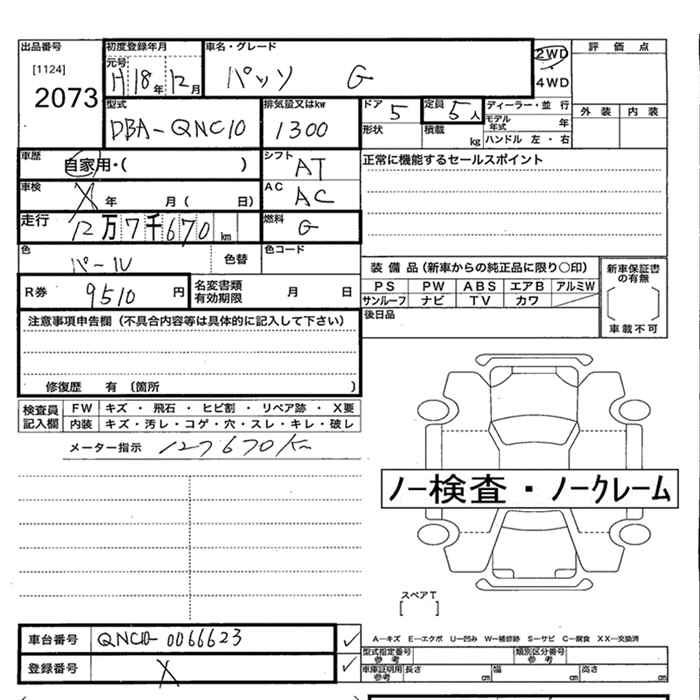 出品番号 初度登録年月 車名・グレード 2WD 評価点
[1124] 元号 H18年12月 パッソ G 4WD
2073 型式 排気量又はkw ドア 5 定員 5人 ディーラー・並行 外装 内装
DBA-QNC10 1300 形状 積載 kg モデル年式 年
ハンドル 左・右
車歴 自家用・( ) シフト AT 正常に機能するセールスポイント
車検 X 年 月( 日) AC AC
走行 12万7千670km 燃料 G
色 パール 色替 色コード
装備品(新車からの純正品に限り〇印) 新車保証書の有無
R券 9510円 名変書類有効期限 月 日 PS PW ABS エアB アルミW
サンルーフ ナビ TV カワ
[ ]
注意事項申告欄(不具合内容等は具体的に記入して下さい) 後日品 車載不可
修復歴 有 〔箇所 〕
検査員記入欄 FW キズ ・ 飛石 ・ ヒビ割 ・ リペア跡 ・ X要
内装 キズ・汚レ・コゲ・穴・スレ・キレ・破レ
メーター指示 127670km
ノー検査・ノークレーム
スペアT
[ ]
車台番号 QNC10-0066623 ✓ A―キズ E―エクボ U―凹み W―補修跡 S―サビ C―腐食 XX―交換済
型式指定番号 参考 類別区分番号 参考
登録番号 X ✓ 車庫証明用 参考 長さ cm 幅 cm 高さ cm